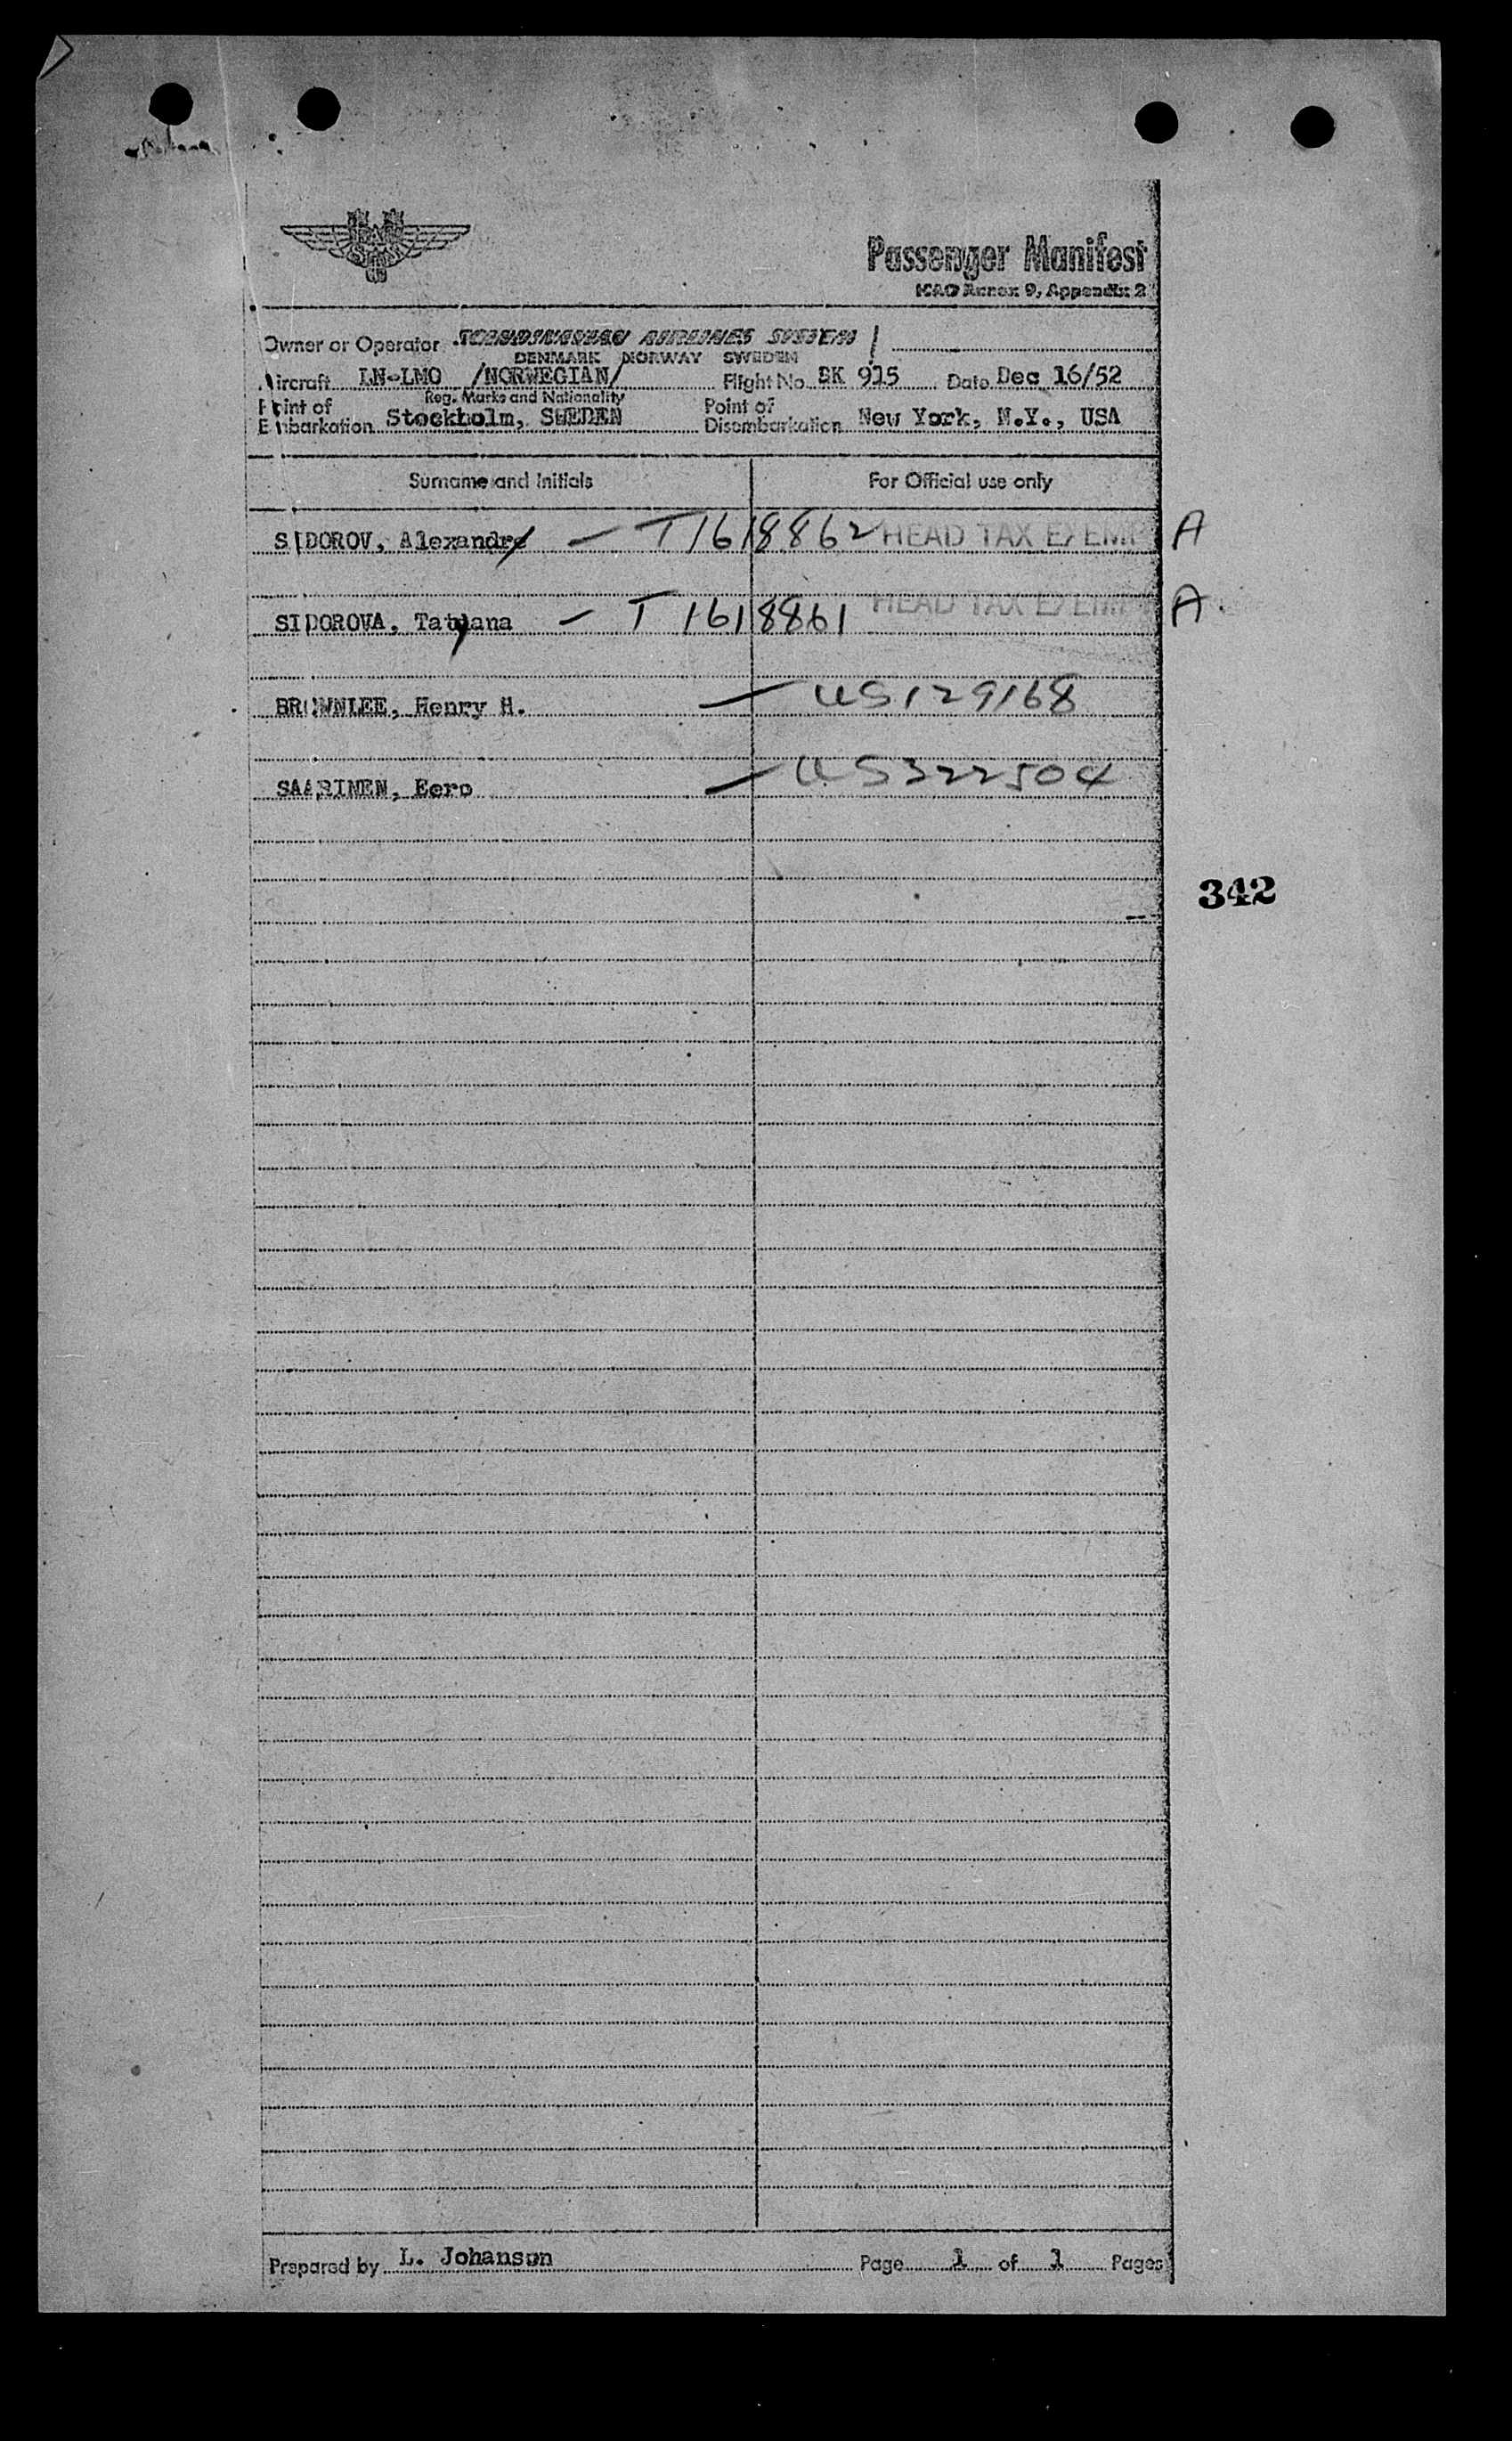 Passenger Manifest
ICAO Annex 9, Appendix 2
Owner or Operator SCANDINAVIAN AIRLINES SYSTEM
DENMARK NORWAY SWEDEN
Aircraft LN-LMO /NORWEGIAN/ Flight No. SK 915 Date Dec 16/52
Reg. Marks and Nationality
Point of Embarkation Stockholm, SWEDEN Point of Disembarkation New York, N.Y., USA
Surname and Initials For Official use only
SIDOROV, Alexandre — T1618862 HEAD TAX EXEMPT A
SIDOROVA, Tatyana — T1618861 HEAD TAX EXEMPT A
BROWNLEE, Henry H. — US129168
SAARINEN, Eero — US322504
342
Prepared by L. Johanson Page 1 of 1 Pages